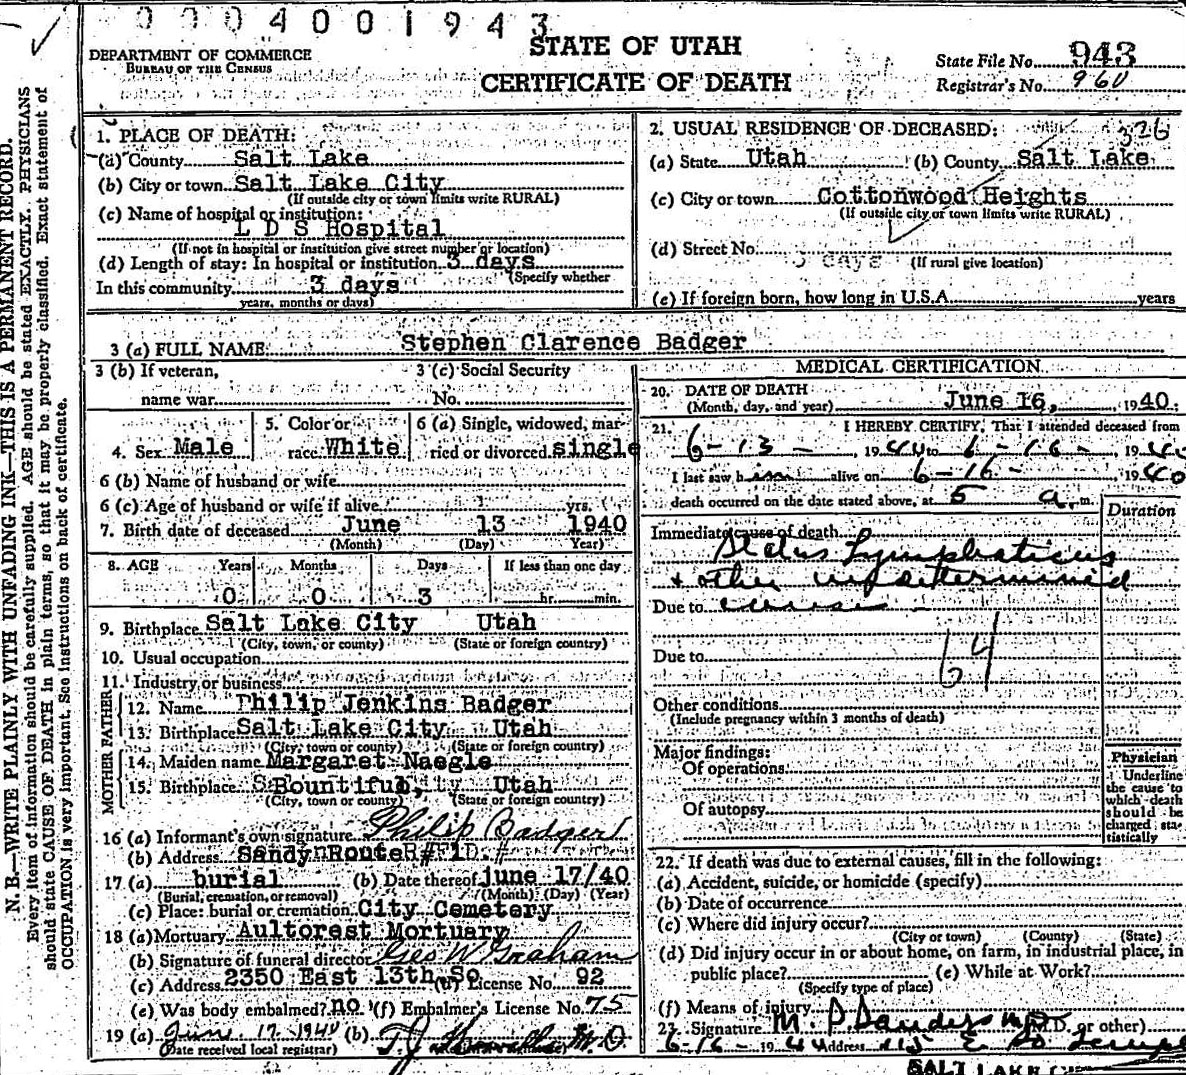 0004001943
DEPARTMENT OF COMMERCE
BUREAU OF THE CENSUS
STATE OF UTAH
CERTIFICATE OF DEATH
State File No. 943
Registrar's No. 960
N. B.—WRITE PLAINLY WITH UNFADING INK—THIS IS A PERMANENT RECORD.
Every item of information should be carefully supplied. AGE should be stated EXACTLY. PHYSICIANS
should state CAUSE OF DEATH in plain terms, so that it may be properly classified. Exact statement of
OCCUPATION is very important. See instructions on back of certificate.
1. PLACE OF DEATH:
(a) County Salt Lake
(b) City or town Salt Lake City
(If outside city or town limits write RURAL)
(c) Name of hospital or institution:
L D S Hospital
(If not in hospital or institution give street number or location)
(d) Length of stay: In hospital or institution 3 days
(Specify whether
In this community 3 days
years, months or days)
2. USUAL RESIDENCE OF DECEASED: 326
(a) State Utah (b) County Salt Lake
(c) City or town Cottonwood Heights
(If outside city or town limits write RURAL)
(d) Street No.
(If rural give location)
(e) If foreign born, how long in U.S.A. years
3 (a) FULL NAME Stephen Clarence Badger
3 (b) If veteran,
name war
3 (c) Social Security
No.
4. Sex Male
5. Color or
race White
6 (a) Single, widowed, mar-
ried or divorced single
6 (b) Name of husband or wife
6 (c) Age of husband or wife if alive yrs.
7. Birth date of deceased June 13 1940
(Month) (Day) Year)
8. AGE Years Months Days If less than one day
0 0 3 hr. min.
9. Birthplace Salt Lake City Utah
(City, town, or county) (State or foreign country)
10. Usual occupation
11. Industry or business
FATHER
12. Name Philip Jenkins Badger
13. Birthplace Salt Lake City Utah
(City, town or county) (State or foreign country)
MOTHER
14. Maiden name Margaret Naegle
15. Birthplace Bountiful, Utah
(City, town or county) (State or foreign country)
16 (a) Informant's own signature Philip Badger
(b) Address Sandy Route R#F1D.#
17 (a) burial (b) Date thereof june 17/40
(Burial, cremation, or removal) (Month) (Day) (Year)
(c) Place: burial or cremation City Cemetery
18 (a) Mortuary Aultorest Mortuary
(b) Signature of funeral director Geo W Graham
(c) Address 2350 East 13th So License No. 92
(e) Was body embalmed? no (f) Embalmer's License No. 75
19 (a) June 17 1940 (b) M.D.
(Date received local registrar)
MEDICAL CERTIFICATION
20. DATE OF DEATH
(Month, day, and year) June 16, 1940.
21. I HEREBY CERTIFY, That I attended deceased from
6-13-, 1940 to 6-16-, 1940
I last saw him alive on 6-16- 1940
death occurred on the date stated above, at 5 a. m.
Duration
Immediate cause of death
Status Lymphaticus
& other undetermined
Due to causes
Due to 64
Other conditions
(Include pregnancy within 3 months of death)
Major findings:
Of operations
Of autopsy
Physician
Underline
the cause to
which death
should be
charged sta-
tistically
22. If death was due to external causes, fill in the following:
(a) Accident, suicide, or homicide (specify)
(b) Date of occurrence
(c) Where did injury occur?
(City or town) (County) (State)
(d) Did injury occur in or about home, on farm, in industrial place, in
public place? (e) While at Work?
(Specify type of place)
(f) Means of injury
23. Signature M. P. Sanders MD (M.D. or other)
6-16- 1940 Address 115 E So Temple
SALT LAKE